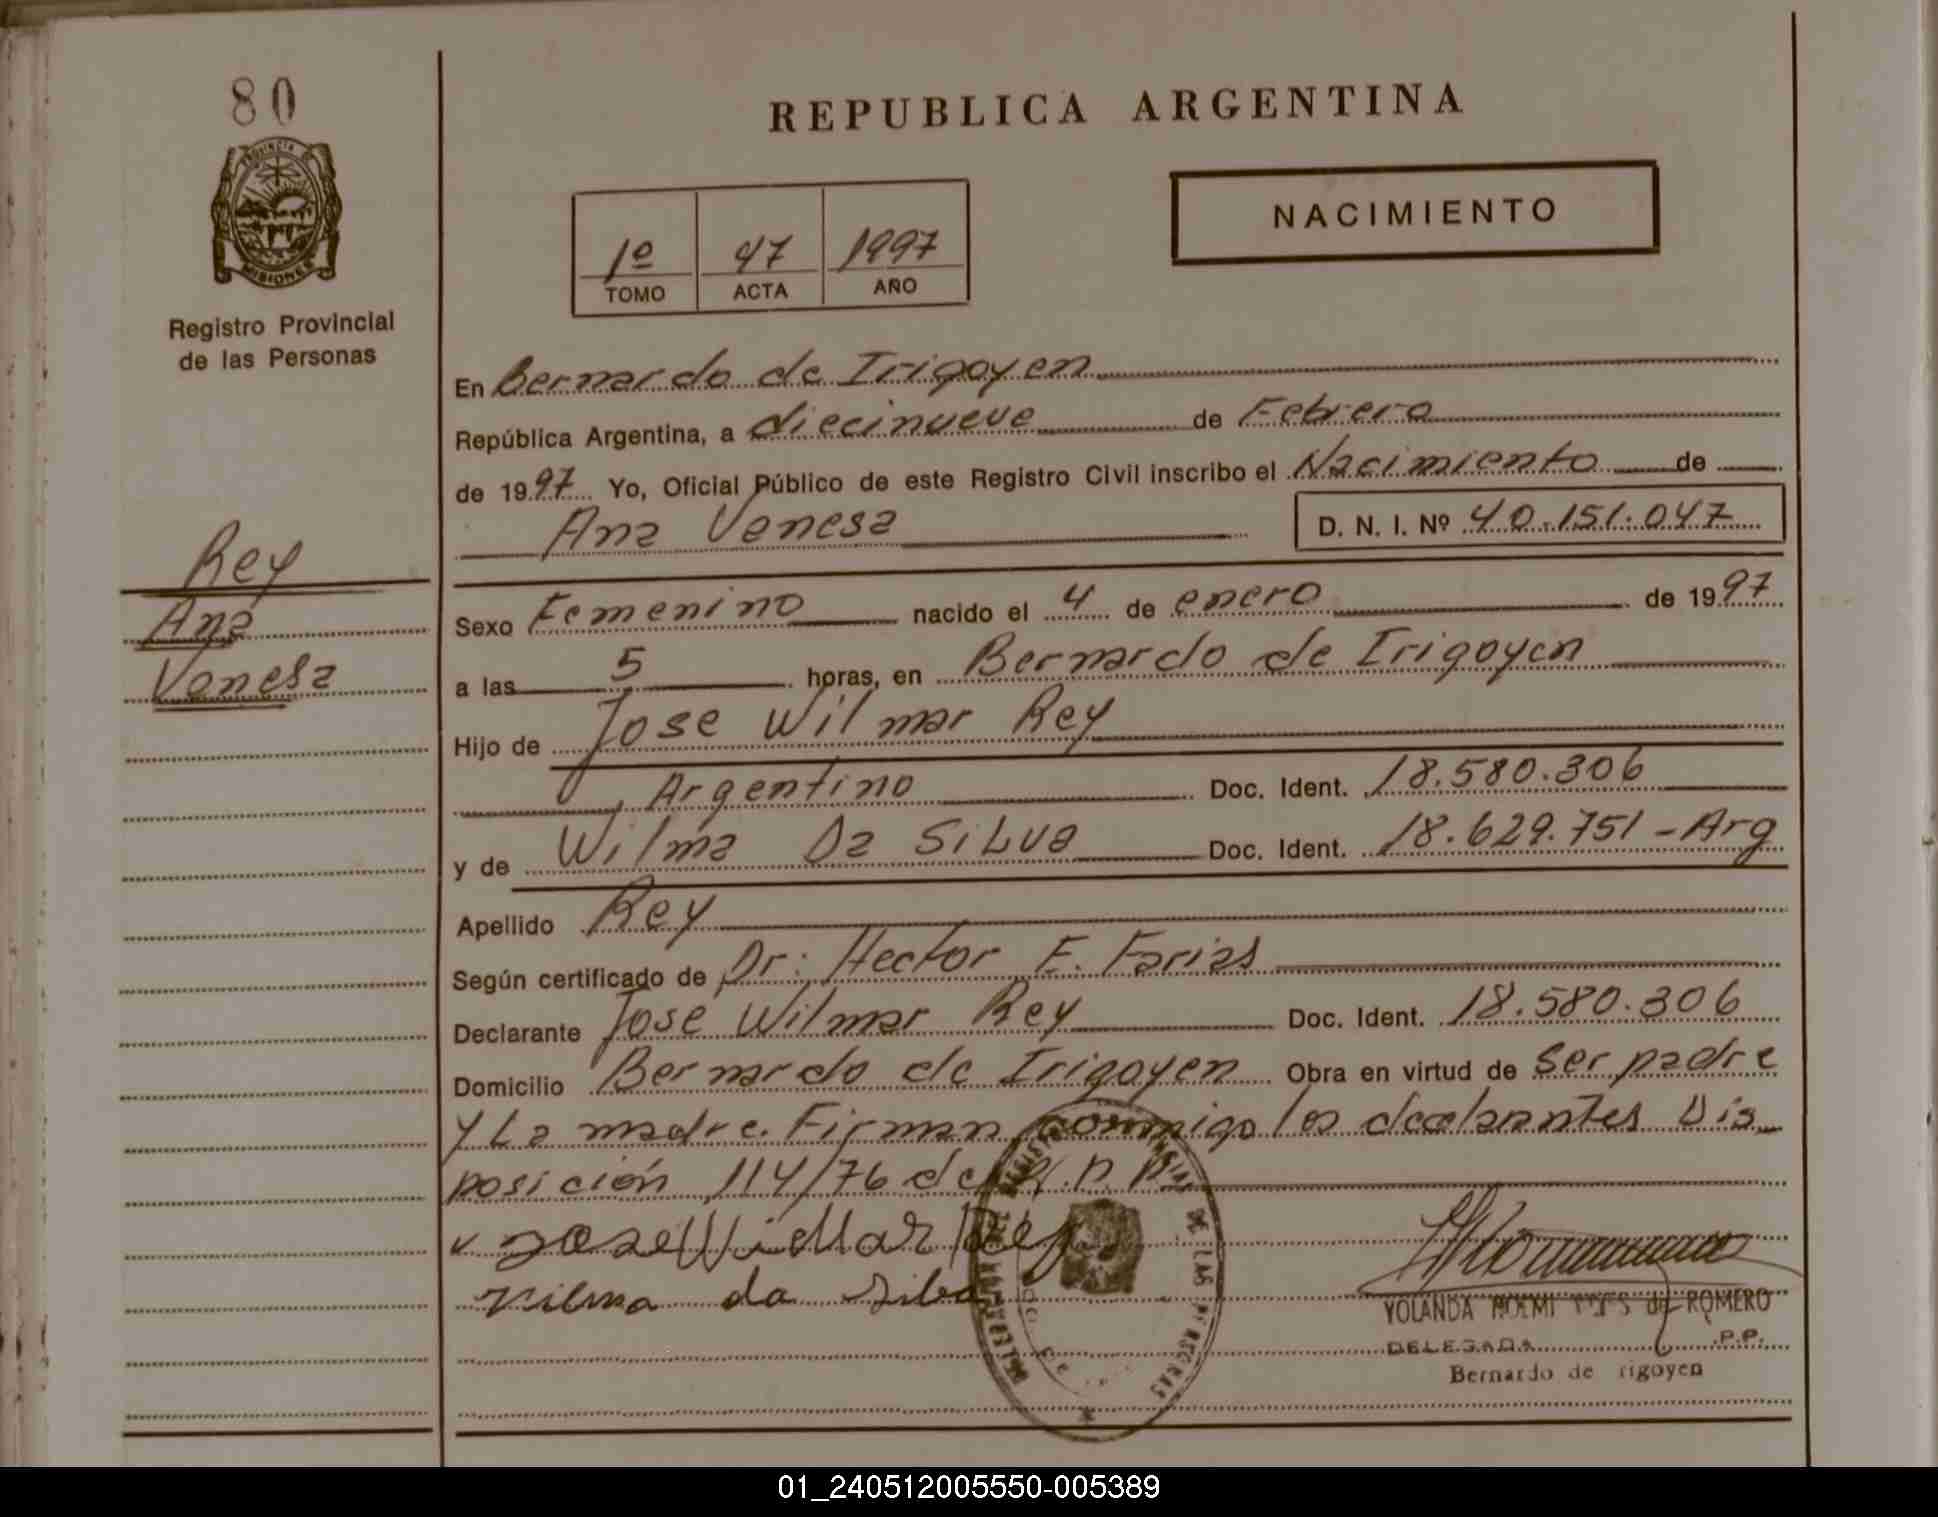 80
PROVINCIA DE
MISIONES
Registro Provincial
de las Personas
REPUBLICA ARGENTINA
NACIMIENTO
1º 47 1997
TOMO ACTA AÑO
En Bernardo de Irigoyen
República Argentina, a diecinueve de Febrero
de 1997 Yo, Oficial Público de este Registro Civil inscribo el Nacimiento de
Ana Venesa D. N. I. Nº 40.151.047
Rey
Ana
Venesa
Sexo Femenino nacido el 4 de enero de 1997
a las 5 horas, en Bernardo de Irigoyen
Hijo de Jose Wilmar Rey
, Argentino Doc. Ident. 18.580.306
y de Wilma Da SiLva Doc. Ident. 18.629.751 - Arg
Apellido Rey
Según certificado de Dr: Hector E. Farias
Declarante Jose Wilmar Rey Doc. Ident. 18.580.306
Domicilio Bernardo de Irigoyen Obra en virtud de Ser padre
y La madre. Firman conmigo los declarantes Dis
posición 114/76 de
Jose Rey
Vilma da Silva
YOLANDA NOEMI de ROMERO
DELEGADA P.P.
Bernardo de rigoyen
DE LAS PERSONAS
01_240512005550-005389